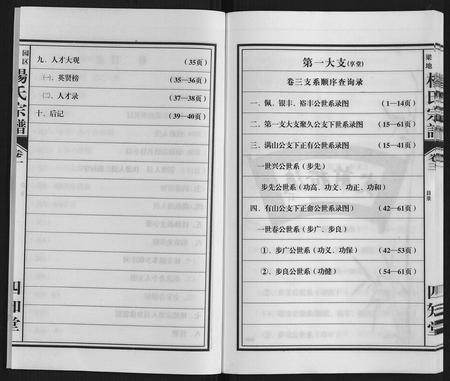 园区
楊氏宗譜
卷一
四知堂
九、人才大观 (35页)
㈠、英贤榜 (35—36页)
㈡、人才录 (37—38页)
十、后记 (39—40页)
第一大支(享堂)
卷三支系顺序查询录
一、佩、银丰、裕丰公世系录图 (1—14页)
二、第一支大支聚久公支下世系录图 (15—61页)
三、满山公支下正有公世系录图 (15—41页)
一世兴公世系(步先)
步先公世系(功高、功文、功正、功和)
四、有山公支下正愈公世系录图) (42—61页)
一世春公世系(步广、步良)
①、步广公世系(功义、功保) (42—53页)
②、步良公世系(功健) (54—61页)
梁地
楊氏宗譜
卷三
目录
四知堂